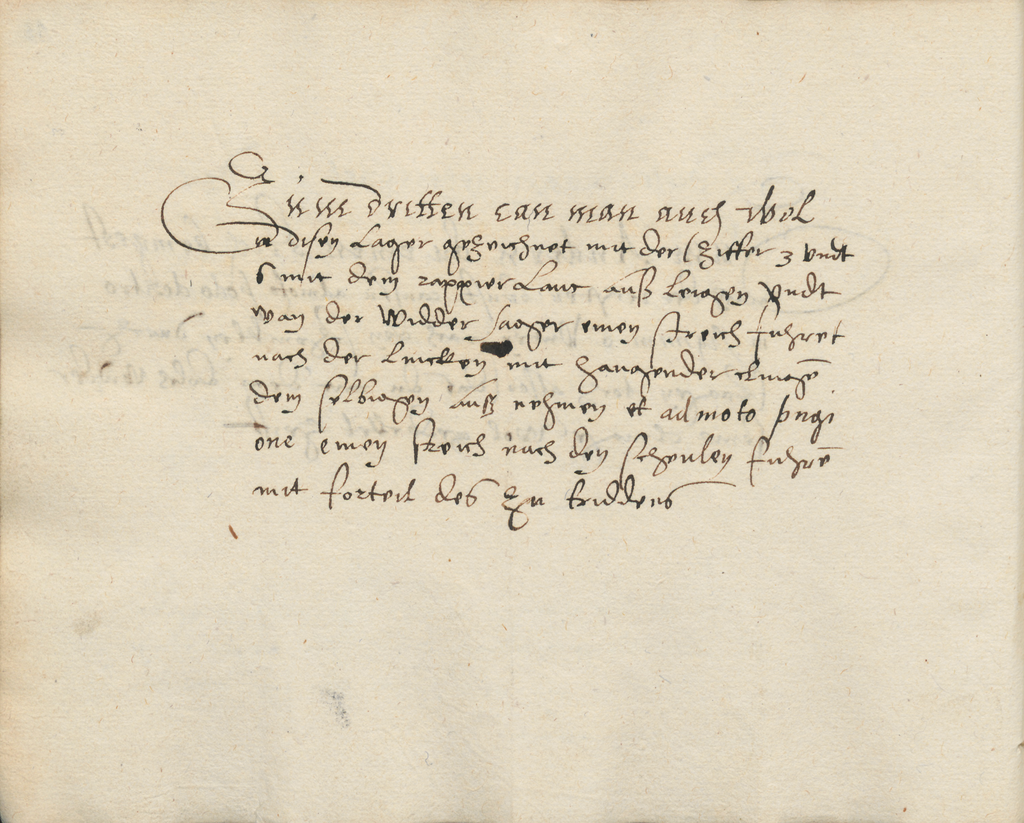 Zum dritten can man auch wol
in disen Lager gezeichnet mit der Ziffer 3 undt
6 mit dem rappier Lanc auß leigen undt
wan der widder sacger einen streich fuhret
nach der lincken mit hangender clingē
dem selbigen auß nehmen et admoto pugi
one einen streich nach den schenlen fuhrē
mit forteil des zu triddens